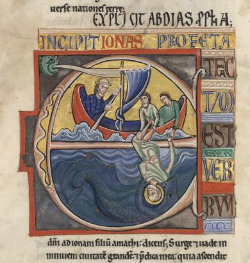 EXPLICIT ABDIAS PPHA:
INCIPIT IONAS PROFETA
ET FAC
TVM
EST
VER
BVM
dñi ad ionam filiũ amathi: dicens; Surge et uade in
niniuen ciuitatẽ grandẽ et p̃dica in ea: quia ascendit